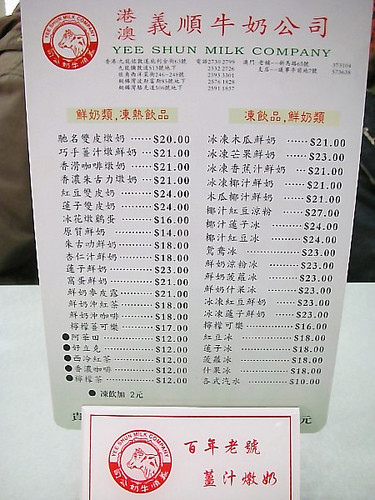 港澳 義順牛奶公司
YEE SHUN MILK COMPANY
YEE SHUN MILK COMPANY
義順牛奶公司
鮮奶類,凍熱飲品
馳名雙皮燉奶 $20.00
巧手薑汁燉鮮奶 $21.00
香滑咖啡燉奶 $21.00
香濃朱古力燉奶 $21.00
紅豆雙皮奶 $24.00
蓮子雙皮奶 $24.00
冰花燉鷄蛋 $16.00
原質鮮奶 $14.00
朱古力鮮奶 $18.00
杏仁汁鮮奶 $18.00
蓮子鮮奶 $23.00
窩蛋鮮奶 $21.00
鮮奶麥皮露 $21.00
鮮奶沖紅茶 $18.00
鮮奶沖咖啡 $18.00
檸檬薑可樂 $17.00
●阿華田 $12.00
●好立克 $12.00
●西冷紅茶 $12.00
●香濃咖啡 $12.00
●檸檬茶 $12.00
● 凍飲加 2元
凍飲品,鮮奶類
冰凍木瓜鮮奶 $21.00
冰凍芒果鮮奶 $23.00
冰凍香蕉汁鮮奶 $21.00
冰凍椰汁鮮奶 $21.00
木瓜椰汁鮮奶 $21.00
椰汁紅豆涼粉 $27.00
椰汁蓮子冰 $24.00
椰汁紅豆冰 $24.00
鴛鴦冰 $23.00
鮮奶涼粉冰 $23.00
鮮奶菠蘿冰 $23.00
鮮奶什果冰 $23.00
冰凍紅豆鮮奶 $23.00
冰凍蓮子鮮奶 $23.00
檸檬可樂 $16.00
紅豆冰 $18.00
蓮子冰 $18.00
菠蘿冰 $18.00
什果冰 $18.00
各式汽水 $10.00
元
YEE SHUN MILK COMPANY
義順牛奶公司
百年老號
薑汁燉奶